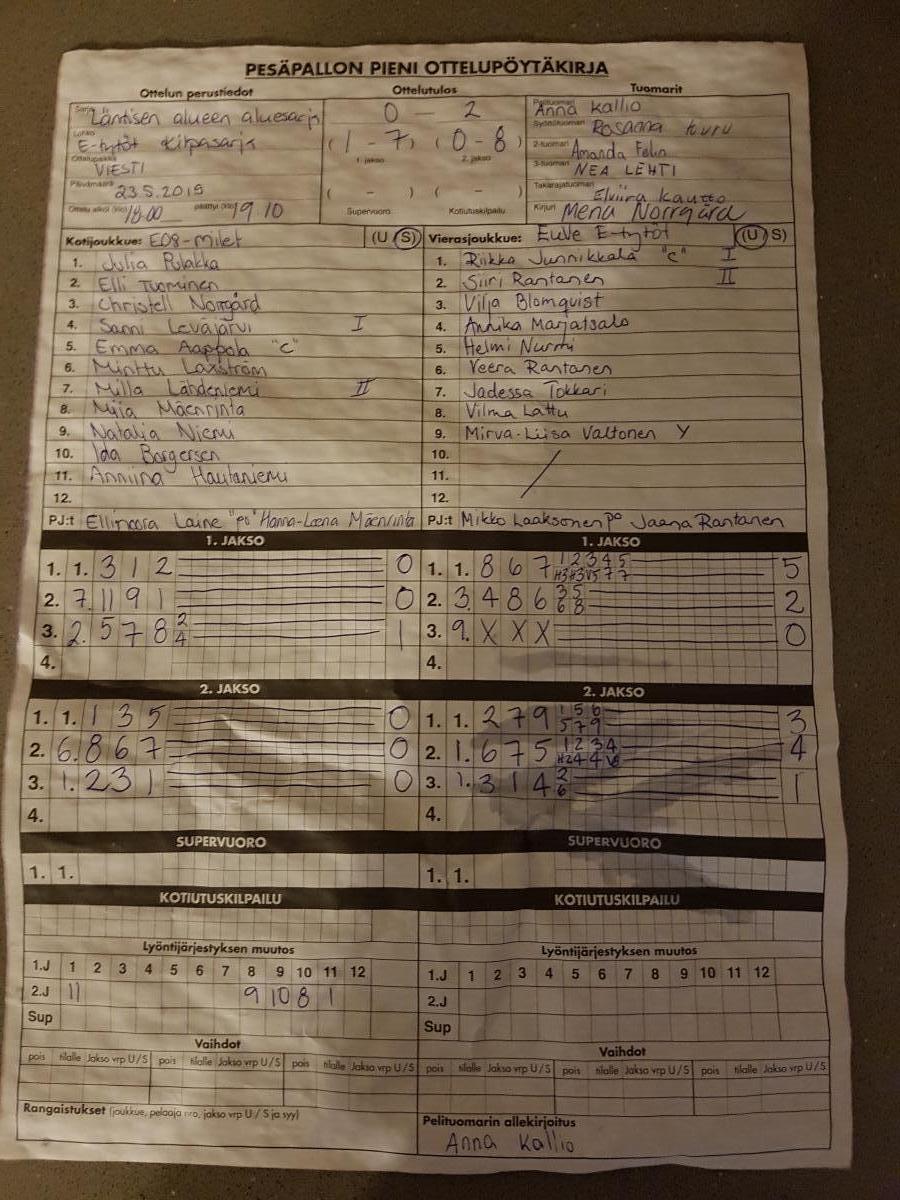 PESÄPALLON PIENI OTTELUPÖYTÄKIRJA
Ottelun perustiedot Ottelutulos Tuomarit
Sarja Läntisen alueen aluesarja
Lohko E-tytöt Kilpasarja
Ottelupaikka VIESTI
Päivämäärä 23.5.2015
Ottelu alkoi (klo) 18.00 päättyi (klo) 19.10
0 - 2
(1 - 7) (0 - 8)
1. jakso 2. jakso
( - ) ( - )
Supervuoro Kotiutuskilpailu
Pelituomari Anna Kallio
Syöttötuomari Rosanna
2-tuomari Amanda
3-tuomari NEA LEHTI
Takarajatuomari Elviira Kautto
Kirjuri Menä Norrgård
Kotijoukkue: E08-Milet (U S)
1. Julia Pulakka
2. Elli Tuominen
3. Christell Norrgård
4. Sanni Leväjärvi I
5. Emma Aappola "C"
6. Minttu Laxström
7. Milla Lähdeniemi II
8. Miia Mäenrinta
9. Natalia Niemi
10. Ida Borgersen
11. Anniina Hautaniemi
12.
PJ:t Ellinoora Laine "po" Hanna-Leena Mäenrinta
Vierasjoukkue: EuVe E-tytöt (U S)
1. Riikka Junnikkala "C" I
2. Siiri Rantanen II
3. Vilja Blomquist
4. Annika Marjatsalo
5. Helmi Nurmi
6. Veera Rantanen
7. Jadessa Tokkari
8. Vilma Lattu
9. Mirva-Liisa Valtonen Y
10.
11.
12.
PJ:t Mikko Laaksonen po Jaana Rantanen
1. JAKSO
1. 1. 3 1 2 0
2. 7. 11 9 1 0
3. 2. 5 7 8 2 4 1
4.
1. JAKSO
1. 1. 8 6 7 1 2 3 4 5 5
H3 H3 V5 7 7
2. 3. 4 8 6 3 5 2
6 8
3. 9. X X X 0
4.
2. JAKSO
1. 1. 1 3 5 0
2. 6. 8 6 7 0
3. 1. 2 3 1 0
4.
2. JAKSO
1. 1. 2 7 9 1 5 6 3
5 7 9
2. 1. 6 7 5 1 2 3 4 4
3. 1. 3 1 4 2 1
6
4.
SUPERVUORO
1. 1.
SUPERVUORO
1. 1.
KOTIUTUSKILPAILU
KOTIUTUSKILPAILU
Lyöntijärjestyksen muutos
1.J 1 2 3 4 5 6 7 8 9 10 11 12
2.J 11 9 10 8 1
Sup
Lyöntijärjestyksen muutos
1.J 1 2 3 4 5 6 7 8 9 10 11 12
2.J
Sup
Vaihdot
pois tilalle Jakso vrp U/S pois tilalle Jakso vrp U/S pois tilalle Jakso vrp U/S
Vaihdot
pois tilalle Jakso vrp U/S pois tilalle Jakso vrp U/S pois tilalle Jakso vrp U/S
Rangaistukset (joukkue, pelaaja nro, jakso vrp U / S ja syy)
Pelituomarin allekirjoitus
Anna Kallio